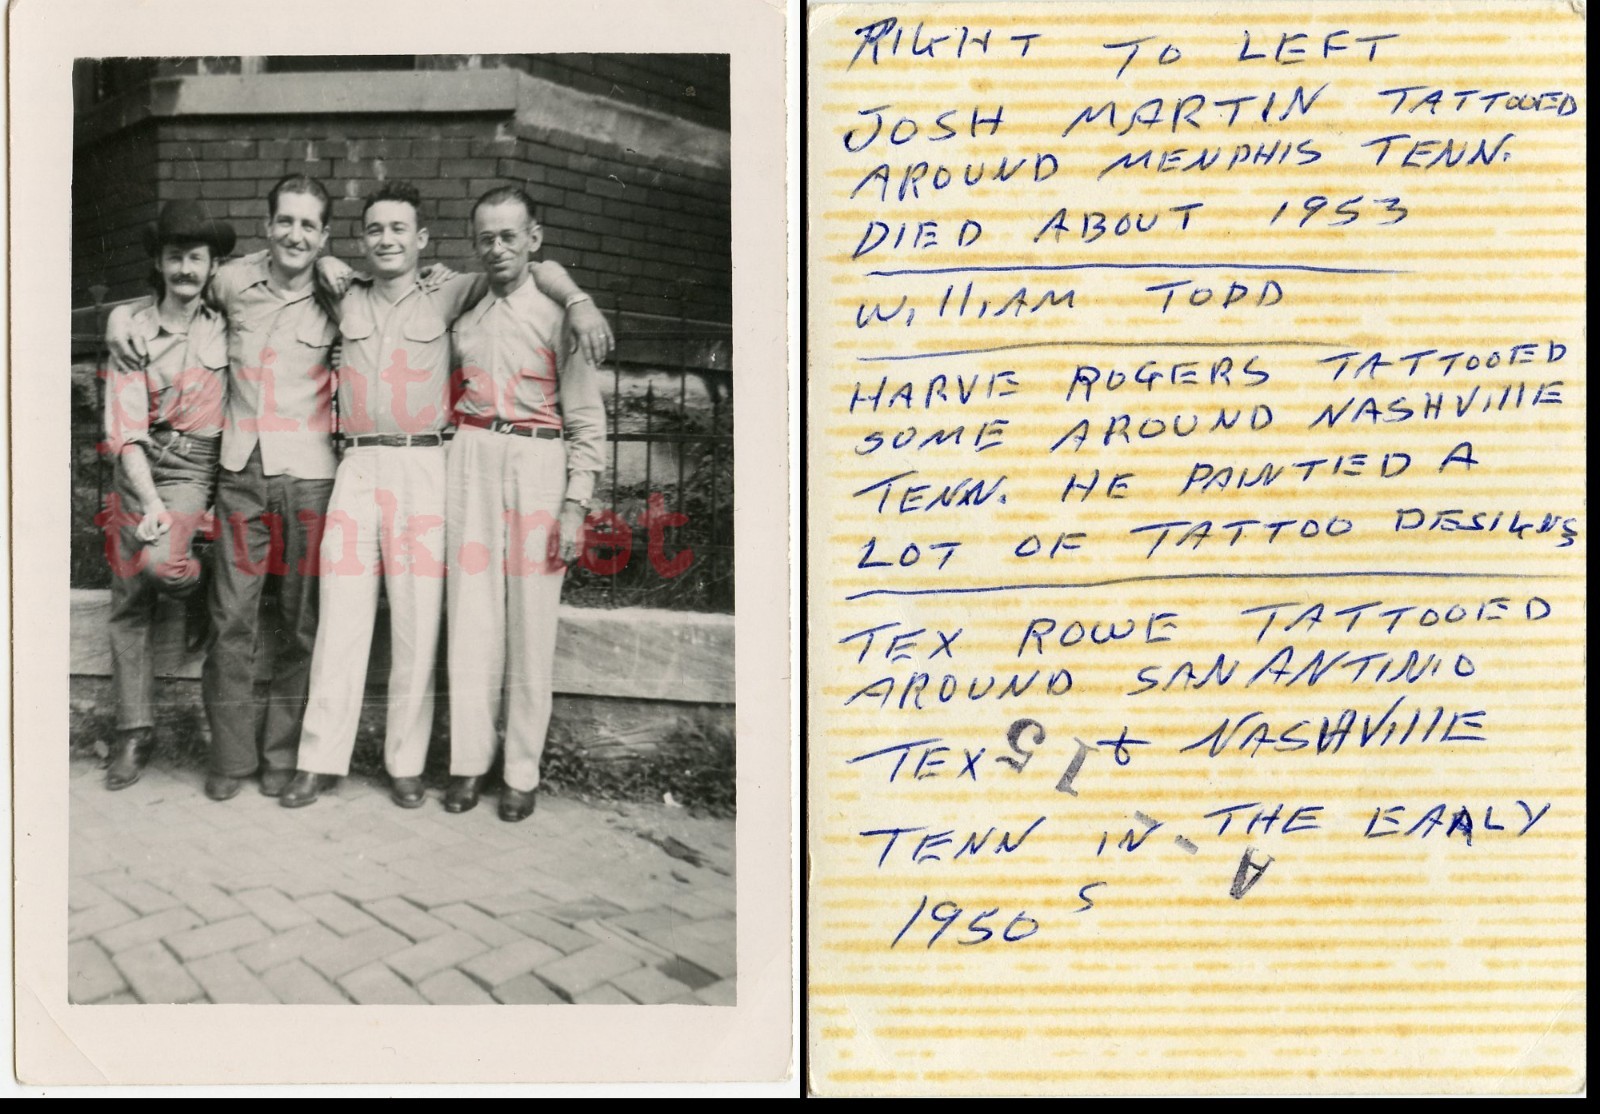 painted
trunk.net
RIGHT TO LEFT
JOSH MARTIN TATTOOED
AROUND MENPHIS TENN.
DIED ABOUT 1953
WILLIAM TODD
HARVE ROGERS TATTOOED
SOME AROUND NASHVILLE
TENN. HE PAINTIED A
LOT OF TATTOO DESIGNS
TEX ROWE TATTOOED
AROUND SAN ANTINIO
TEX & NASHVILLE
TENN IN THE EARLY
1950S